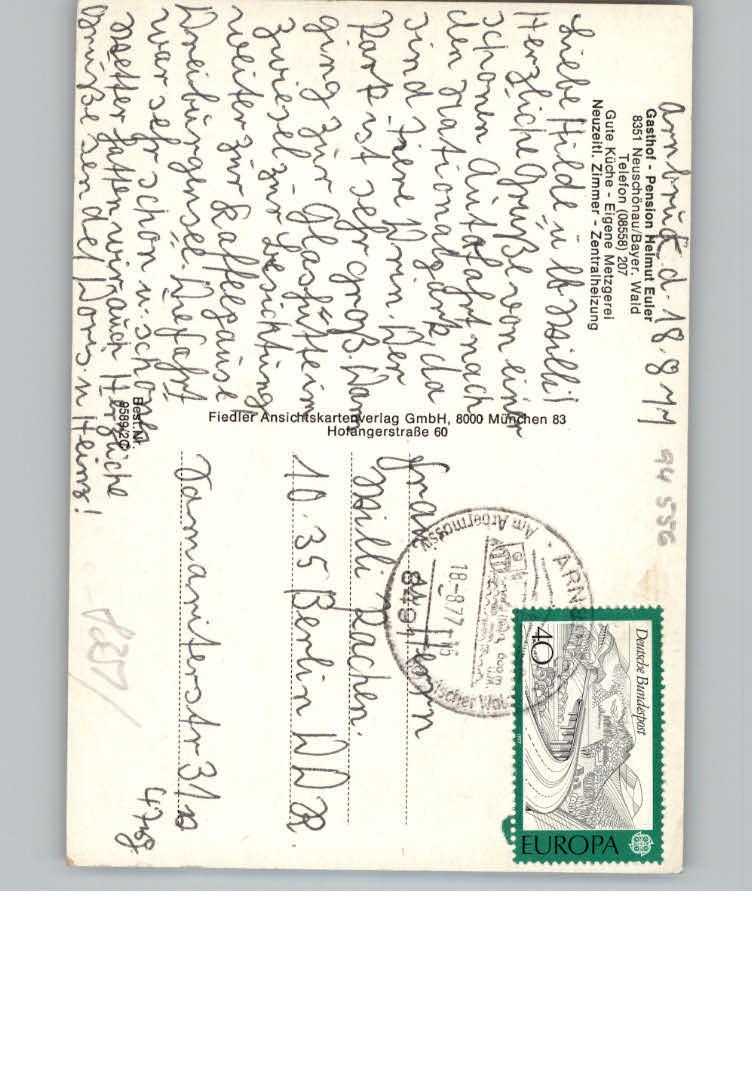 Arnbruk d. 18.8.77
Gasthof - Pension Helmut Euler
8351 Neuschönau/Bayer. Wald
Telefon (08558) 207
Gute Küche - Eigene Metzgerei
Neuzeitl. Zimmer - Zentralheizung
Liebe Hilde u. lb Willi!
Herzliche Grüße von einer
schönen Autofahrt nach
den Nationalpark, da
sind Tiere drin. Der
Park ist sehr groß. Dann
ging zur Glashütte in
Zwiesel zur Besichtigung
weiter zur Kaffeepause
Dreiburgensee. Die Fahrt
war sehr schön u. schönes
Wetter hatten wir auch Herzliche
Grüße sendet Doris u Heinz!
Best.Nr.
9589/20
Fiedler Ansichtskartenverlag GmbH, 8000 München 83
Hofangerstraße 60
94 556
Frau u Herrn
Willi Rachen.
10.35 Berlin DDR.
31a
4708
Am Arbermassiv
18-8.77-16
8491
Deutsche Bundespost
40
1977
EUROPA